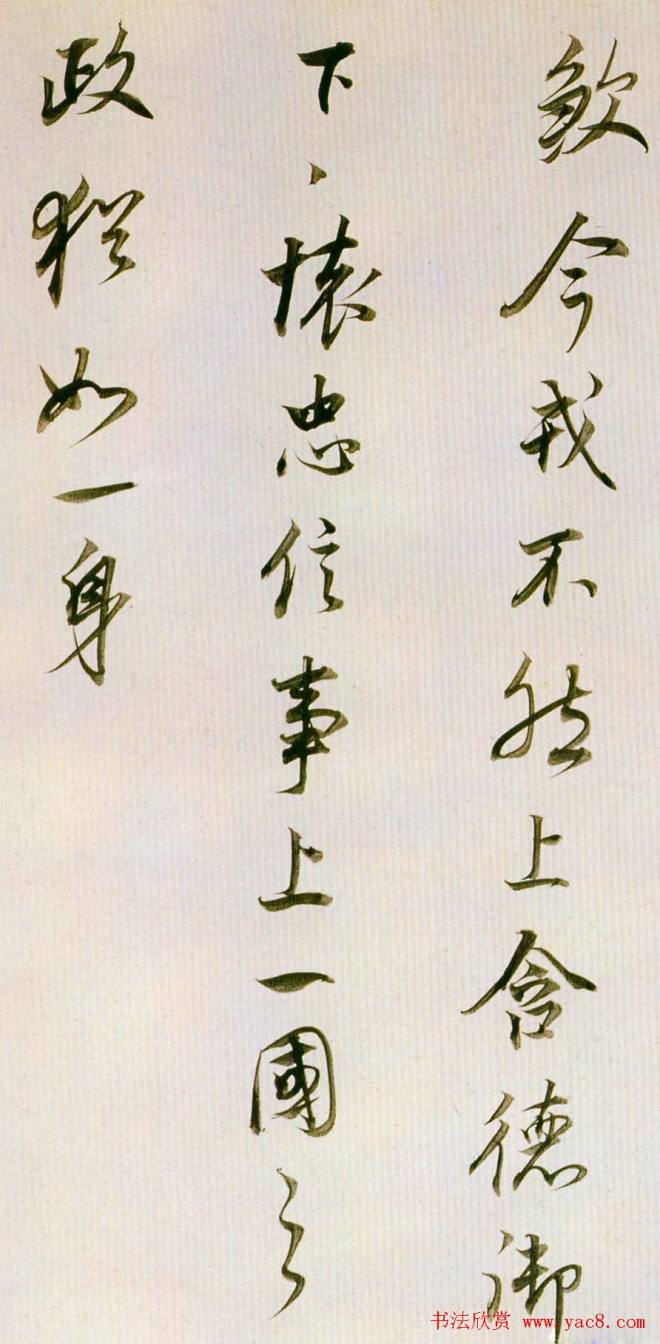 歟今戎不然上含德御
下、懷忠信事上一國之
政猶如一身
书法欣赏 www.yac8.com